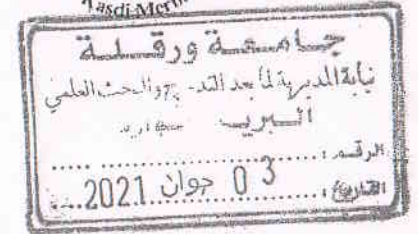 Kasdi-Mer
جامعة ورقلة
نيابة المديرية لما بعد التدرج والبحث العلمي
البريد
الرقم :
التاريخ : 03 جوان 2021